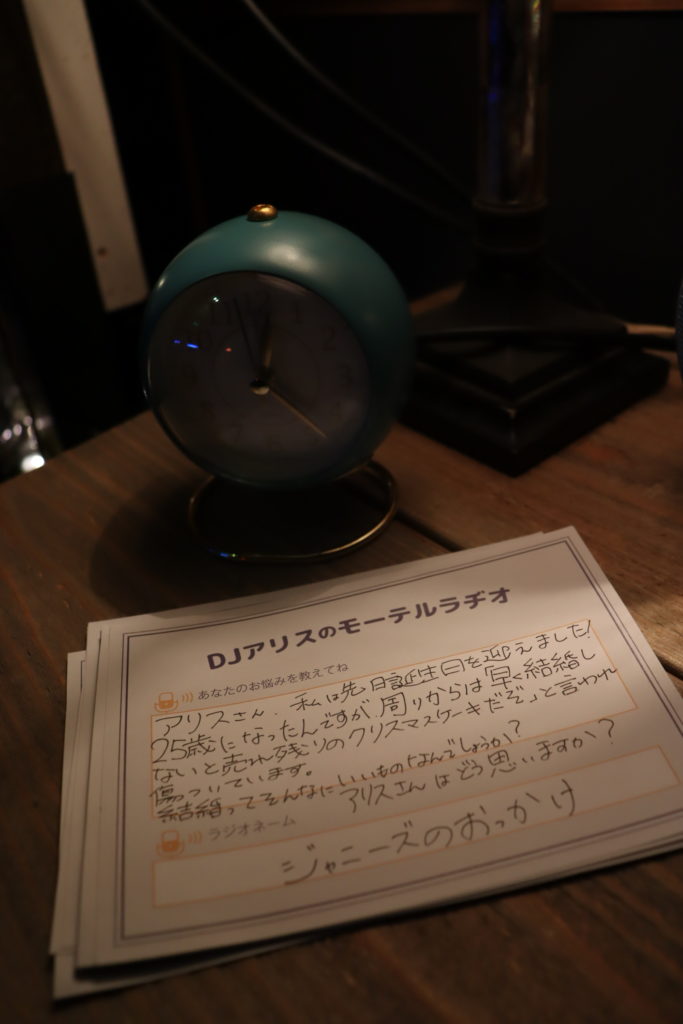 11
12
1
2
3
DJアリスのモーテルラヂオ
あなたのお悩みを教えてね
アリスさん、私は先日誕生日を迎えました!
25歳になったんですが、周りからは「早く結婚し
ないと売れ残りのクリスマスケーキだぞ」と言われ
傷ついています。
結婚ってそんなにいいものなんでしょうか?
アリスさんはどう思いますか?
ラジオネーム
ジャニーズのおっかけ